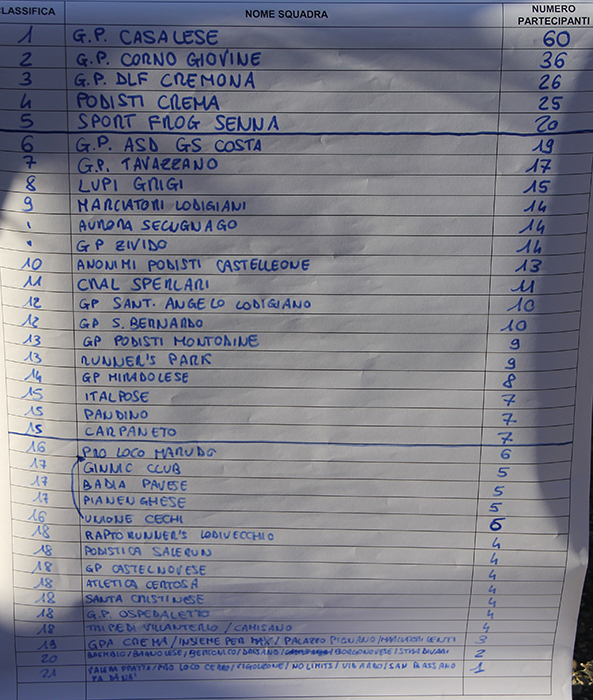 CLASSIFICA NOME SQUADRA NUMERO PARTECIPANTI
1 G.P. CASALESE 60
2 G.P. CORNO GIOVINE 36
3 G.P. DLF CREMONA 26
4 PODISTI CREMA 25
5 SPORT FROG SENNA 20
6 G.P. ASD GS COSTA 19
7 G.P. TAVAZZANO 17
8 LUPI GRIGI 15
9 MARCIATORI LODIGIANI 14
" AURORA SECUGNAGO 14
" GP ZIVIDO 14
10 ANONIMI PODISTI CASTELLEONE 13
11 CRAL SPERLARI 11
12 GP SANT. ANGELO LODIGIANO 10
12 GP S. BERNARDO 10
13 GP PODISTI MONTODINE 9
13 RUNNER'S PARK 9
14 GP MIRADOLESE 8
15 ITALPOSE 7
15 PANDINO 7
15 CARPANETO 7
16 PRO LOCO MARUDO 6
17 GINNIC CLUB 5
17 BADIA PAVESE 5
17 PIANENGHESE 5
16 UNIONE CECHI 6
18 RAPTORUNNER'S LODIVECCHIO 4
18 PODISTICA SALERUN 4
18 GP CASTELNOVESE 4
18 ATLETICA CERTOSA 4
18 SANTA CRISTINESE 4
18 G.P. OSPEDALETTO 4
18 TRIPEDI VILLANTERIO / CAMISANO 4
19 GPA CREMA / INSIEME PER MAX / PALAZZO PIGNANO / MARCIATORI LENTI 3
20 BAGNOLESE / BORGONOVESE / STRADIVARI 2
21 PRO LOCO / PIGOLEONE / NO LIMITS / SAN BASSANO 1